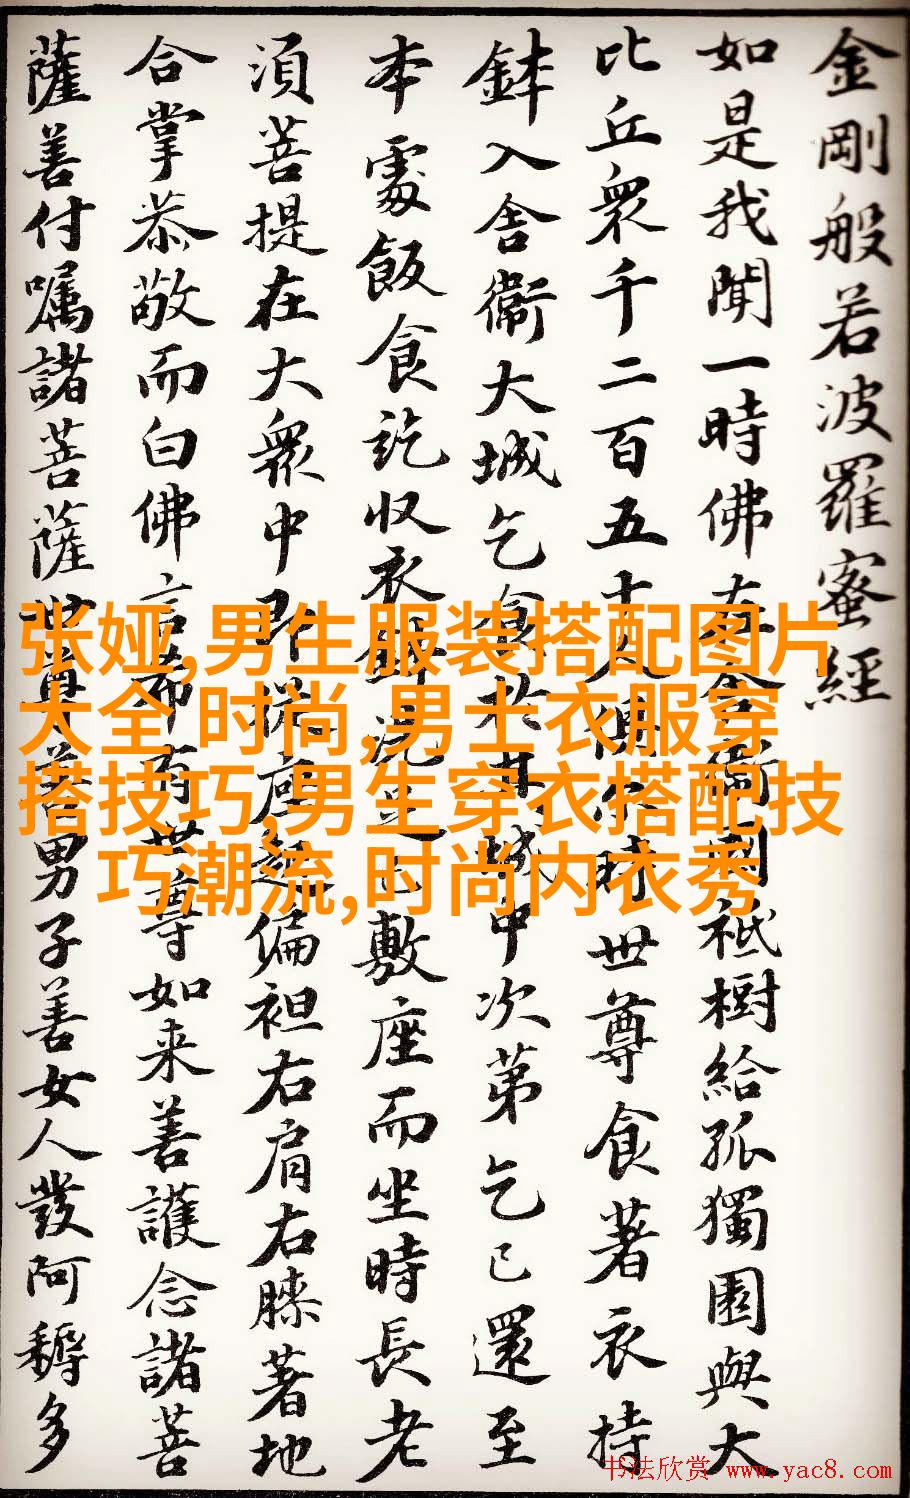 金剛般若波羅蜜經
如是我聞一時佛在舍衞國祇樹給孤獨園與大
比丘衆千二百五十人俱尒時世尊食著衣持
鉢入舍衞大城乞食於其城中次第乞已還至
本處飯食訖收衣鉢洗足已敷座而坐時長老
須菩提在大衆中即從座起偏袒右肩右膝著地
合掌恭敬而白佛言希有世尊如来善護念諸菩
薩善付嘱諸菩薩世尊善男子善女人發阿耨多
张娅,男生服装搭配图片
大全,时尚,男士衣服穿
搭技巧,男生穿衣搭配技
巧潮流,时尚内衣秀
书法欣赏 www.yac8.com